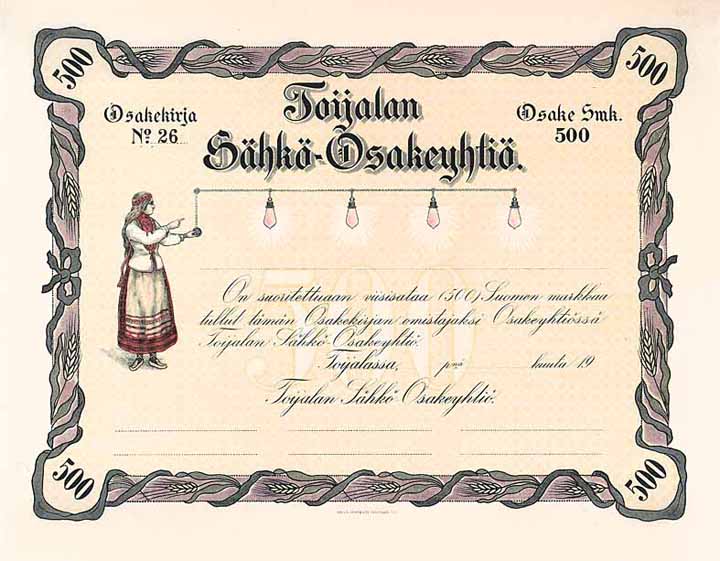 500
500
Osakekirja
No. 26
Toijalan
Sähkö-Osakeyhtiö.
Osake Smk.
500
500
On suoritettuaan viisisataa (500) Suomen markkaa
tullut tämän Osakekirjan omistajaksi Osakeyhtiössä
Toijalan Sähkö-Osakeyhtiö.
Toijalassa, p:nä kuuta 19
Toijalan Sähkö-Osakeyhtiö.
500
500